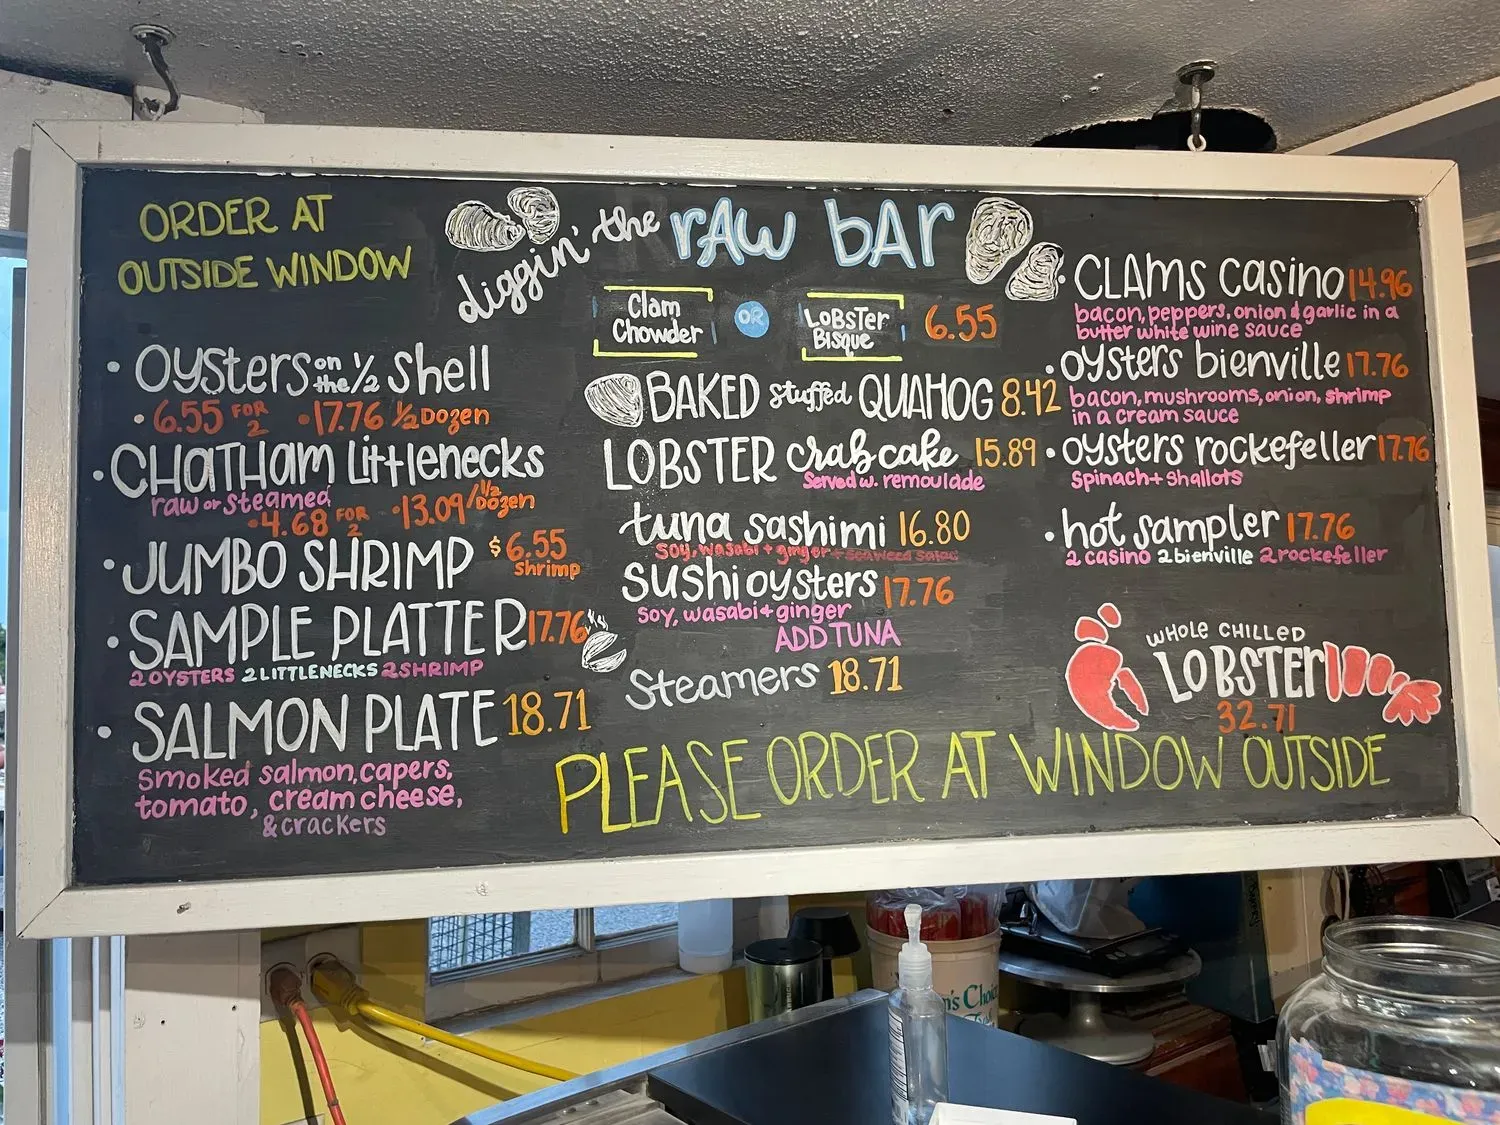 ORDER AT
OUTSIDE WINDOW
diggin' the RAW BAR
• OYSTERS on the 1/2 Shell
• 6.55 FOR 2 • 17.76 1/2 Dozen
• CHATHAM Littlenecks
raw or steamed
• 4.68 FOR 2 • 13.09/ 1/2 Dozen
• JUMBO SHRIMP $6.55
Shrimp
• SAMPLE PLATTER 17.76
2 OYSTERS 2 LITTLENECKS 2 SHRIMP
• SALMON PLATE 18.71
smoked salmon, capers,
tomato, cream cheese,
& crackers
Clam Chowder OR LOBSTER Bisque 6.55
BAKED stuffed QUAHOG 8.42
LOBSTER crab cake 15.89
Served w. remoulade
tuna sashimi 16.80
soy, wasabi + ginger + seaweed salad
SUSHI oysters 17.76
soy, wasabi + ginger
ADD TUNA
Steamers 18.71
• CLAMS CASINO 14.96
bacon, peppers, onion & garlic in a
butter white wine sauce
• oysters bienville 17.76
bacon, mushrooms, onion, shrimp
in a cream sauce
• oysters rockefeller 17.76
spinach + shallots
• hot sampler 17.76
2 casino 2 bienville 2 rockefeller
WHOLE CHILLED
LOBSTER
32.71
PLEASE ORDER AT WINDOW OUTSIDE